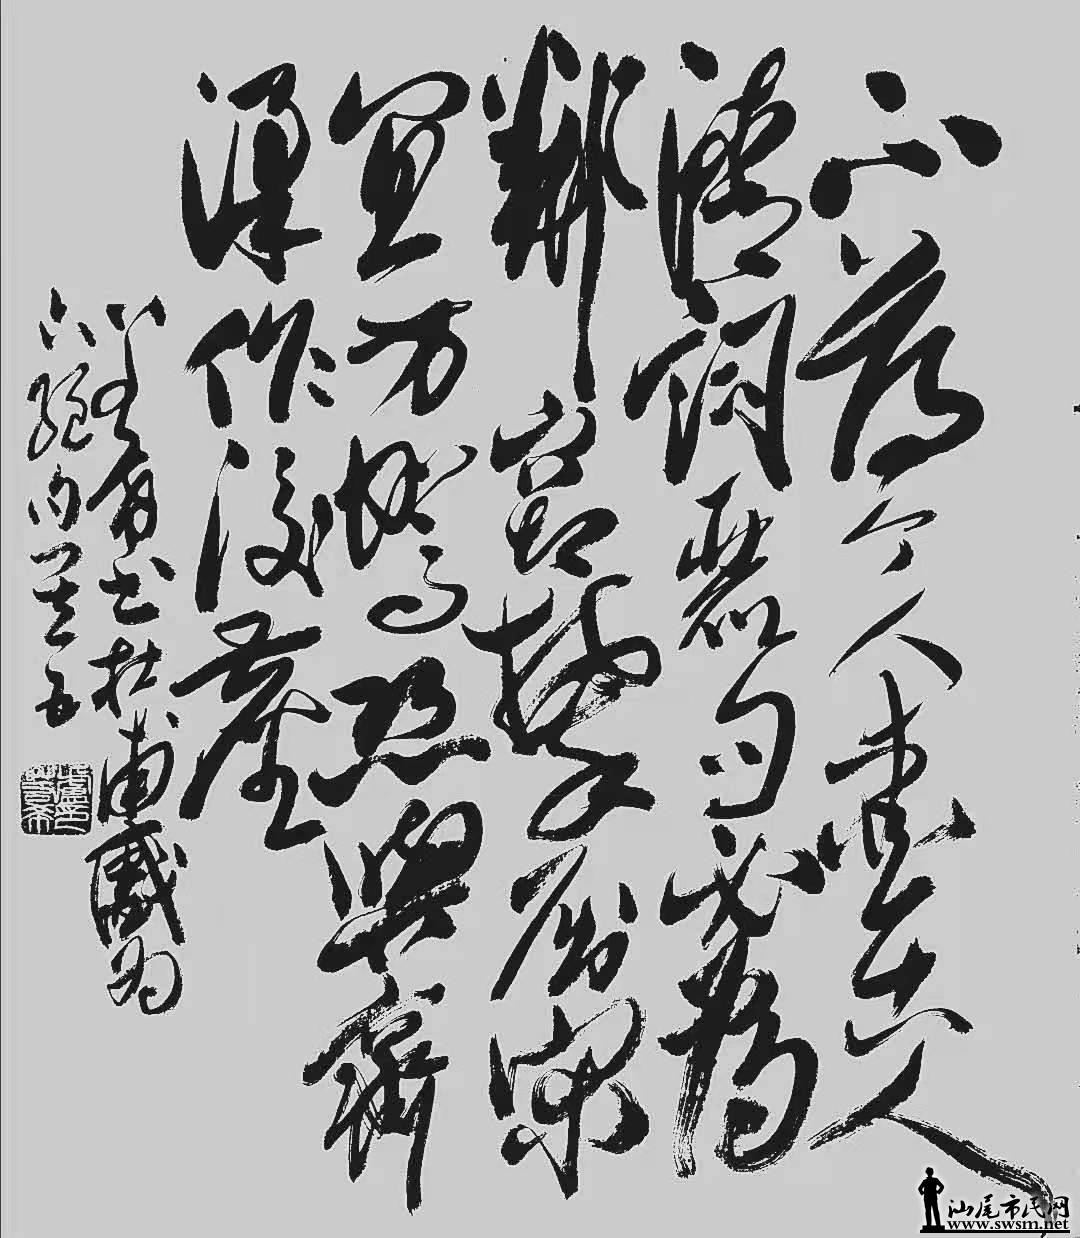 不薄今人愛古人
清詞麗句必為
鄰竊攀屈宋
宜方駕恐與齊
梁作後塵
書杜甫戲為
六絕句其五
汕尾市民网
www.swsm.net